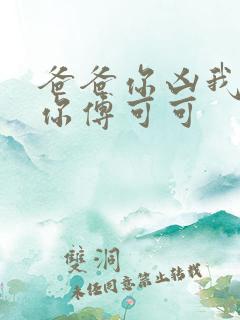 爸爸你凶我
你傅可可
雙洞
未经同意禁止转载